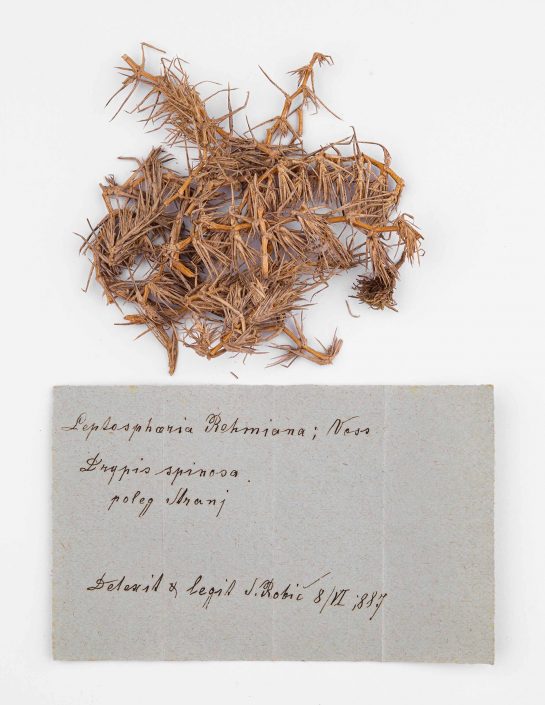 Leptosphæria Rehmiana; Voss
Drypis spinosa.
poleg Stranj
Detexit & legit S. Robič 8/VI 1887